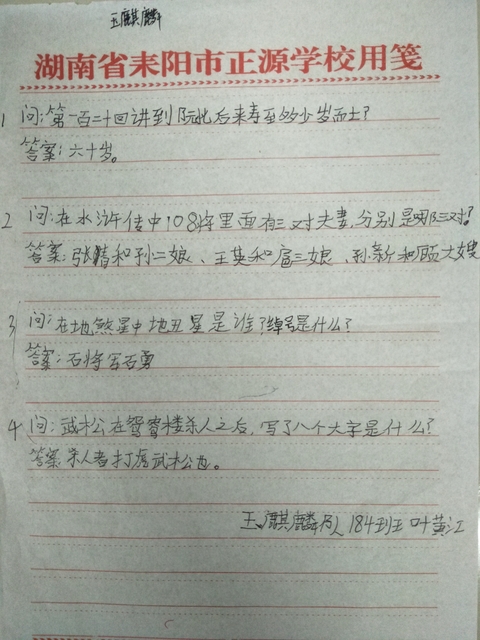 玉麒麟
湖南省耒阳市正源学校用笺
1 问:第一百二十回讲到阮小七后来寿至多少岁而亡?
答案:六十岁。
2 问:在水浒传中108将里面有三对夫妻,分别是哪三对?
答案:张青和孙二娘、王英和扈三娘、孙新和顾大嫂
3 问:在地煞星中地丑星是谁?绰号是什么?
答案:石将军石勇
4 问:武松在鸳鸯楼杀人之后,写了八个大字是什么?
答案杀人者打虎武松也。
玉麒麟队 184班 叶黄江